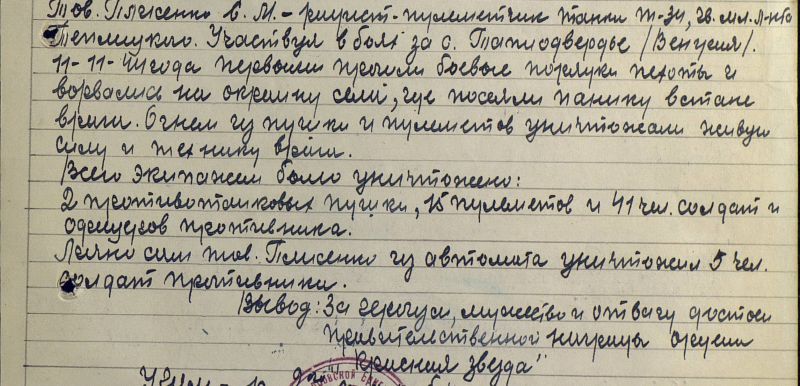 Тов. Плисенко С. М. - радист-пулеметчик танка Т-34, гв. мл. л-нта
Теплицкого. Участвуя в боях за с. Тапиодьердье /Венгрия/.
11-11-44 года первыми прошли боевые порядки пехоты и
ворвались на окраину села, где посеяли панику в стане
врага. Огнем из пушки и пулеметов уничтожали живую
силу и технику врага.
Всего экипажем было уничтожено:
2 противотанковых пушки, 15 пулеметов и 41 чел. солдат и
офицеров противника.
Лично сам тов. Плисенко из автомата уничтожил 5 чел.
солдат противника.
Вывод: За героизм, мужество и отвагу достоин
правительственной награды ордена
"Красная звезда"